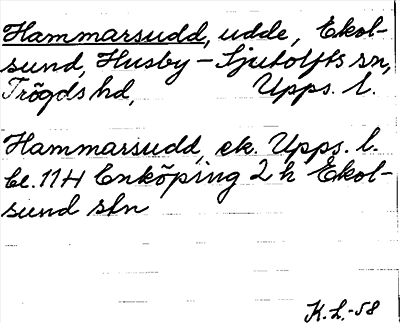 Hammarsudd, udde, Ekol-
sund, Husby-Sjutolfts sn,
Trögds hd, Upps. l.
Hammarsudd, ek. Upps. l.
bl. 114 Enköping 2 h Ekol-
sund stn
K.L.-58